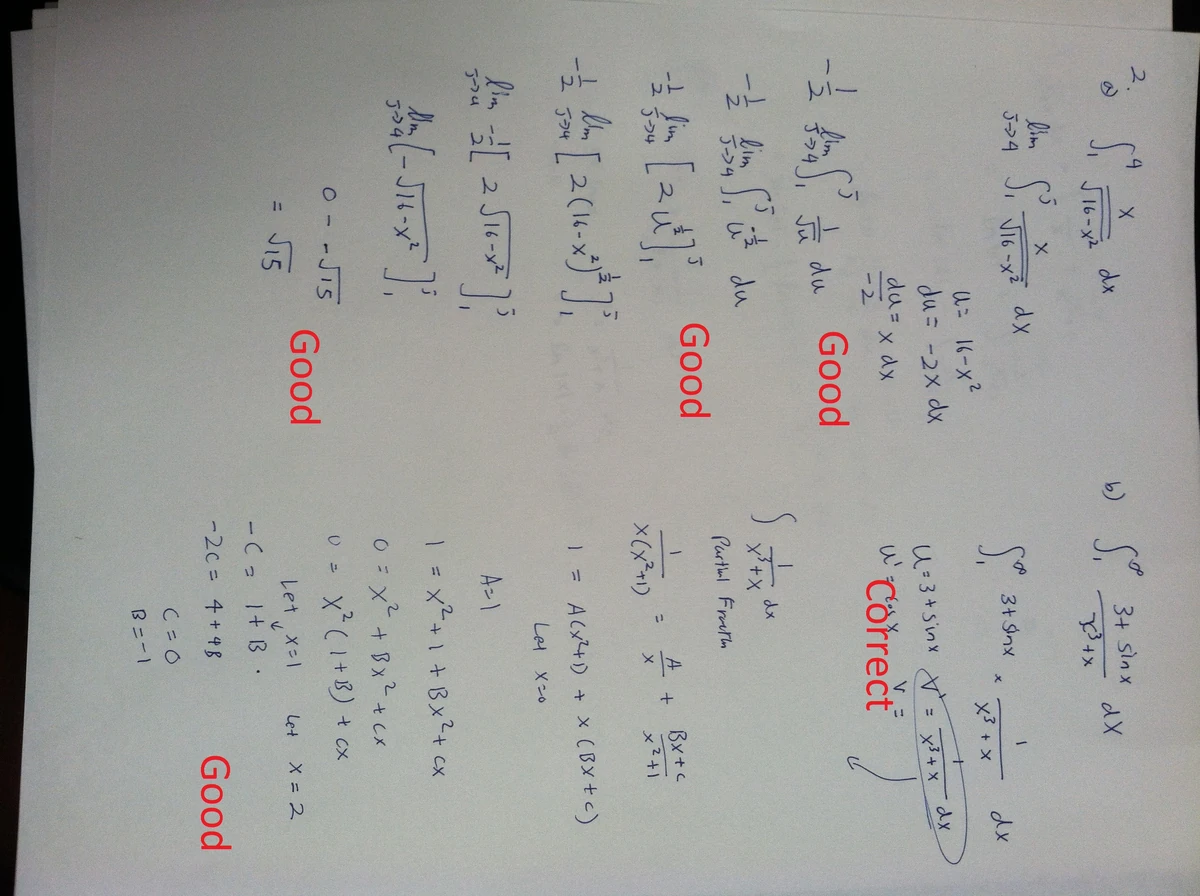 2.
a) ∫₁⁴ x/√(16-x²) dx
lim J→4 ∫₁ᴶ x/√(16-x²) dx
u = 16-x²
du = -2x dx
du/-2 = x dx
-1/2 lim J→4 ∫₁ᴶ 1/√u du
Good
-1/2 lim J→4 ∫₁ᴶ u^(-1/2) du
-1/2 lim J→4 [2u^(1/2)]₁ᴶ
Good
-1/2 lim J→4 [2(16-x²)^(1/2)]₁ᴶ
lim J→4 -1/2 [2√(16-x²)]₁ᴶ
lim J→4 (-√(16-x²)]₁ᴶ
0 - -√15
= √15
Good
b) ∫₁^∞ (3+sinx)/(x³+x) dx
∫₁^∞ 3+sinx × 1/(x³+x) dx
u = 3+sinx v' = 1/(x³+x) dx
u' = cosx v =
Correct
∫ 1/(x³+x) dx
Partial
1/(x(x²+1)) = A/x + (Bx+c)/(x²+1)
1 = A(x²+1) + x(Bx+c)
Let x=0
A=1
1 = x²+1+Bx²+cx
0 = x²+Bx²+cx
0 = x²(1+B)+cx
Let x=1 Let x=2
-c = 1+B.
-2c = 4+4B
c=0
B=-1
Good